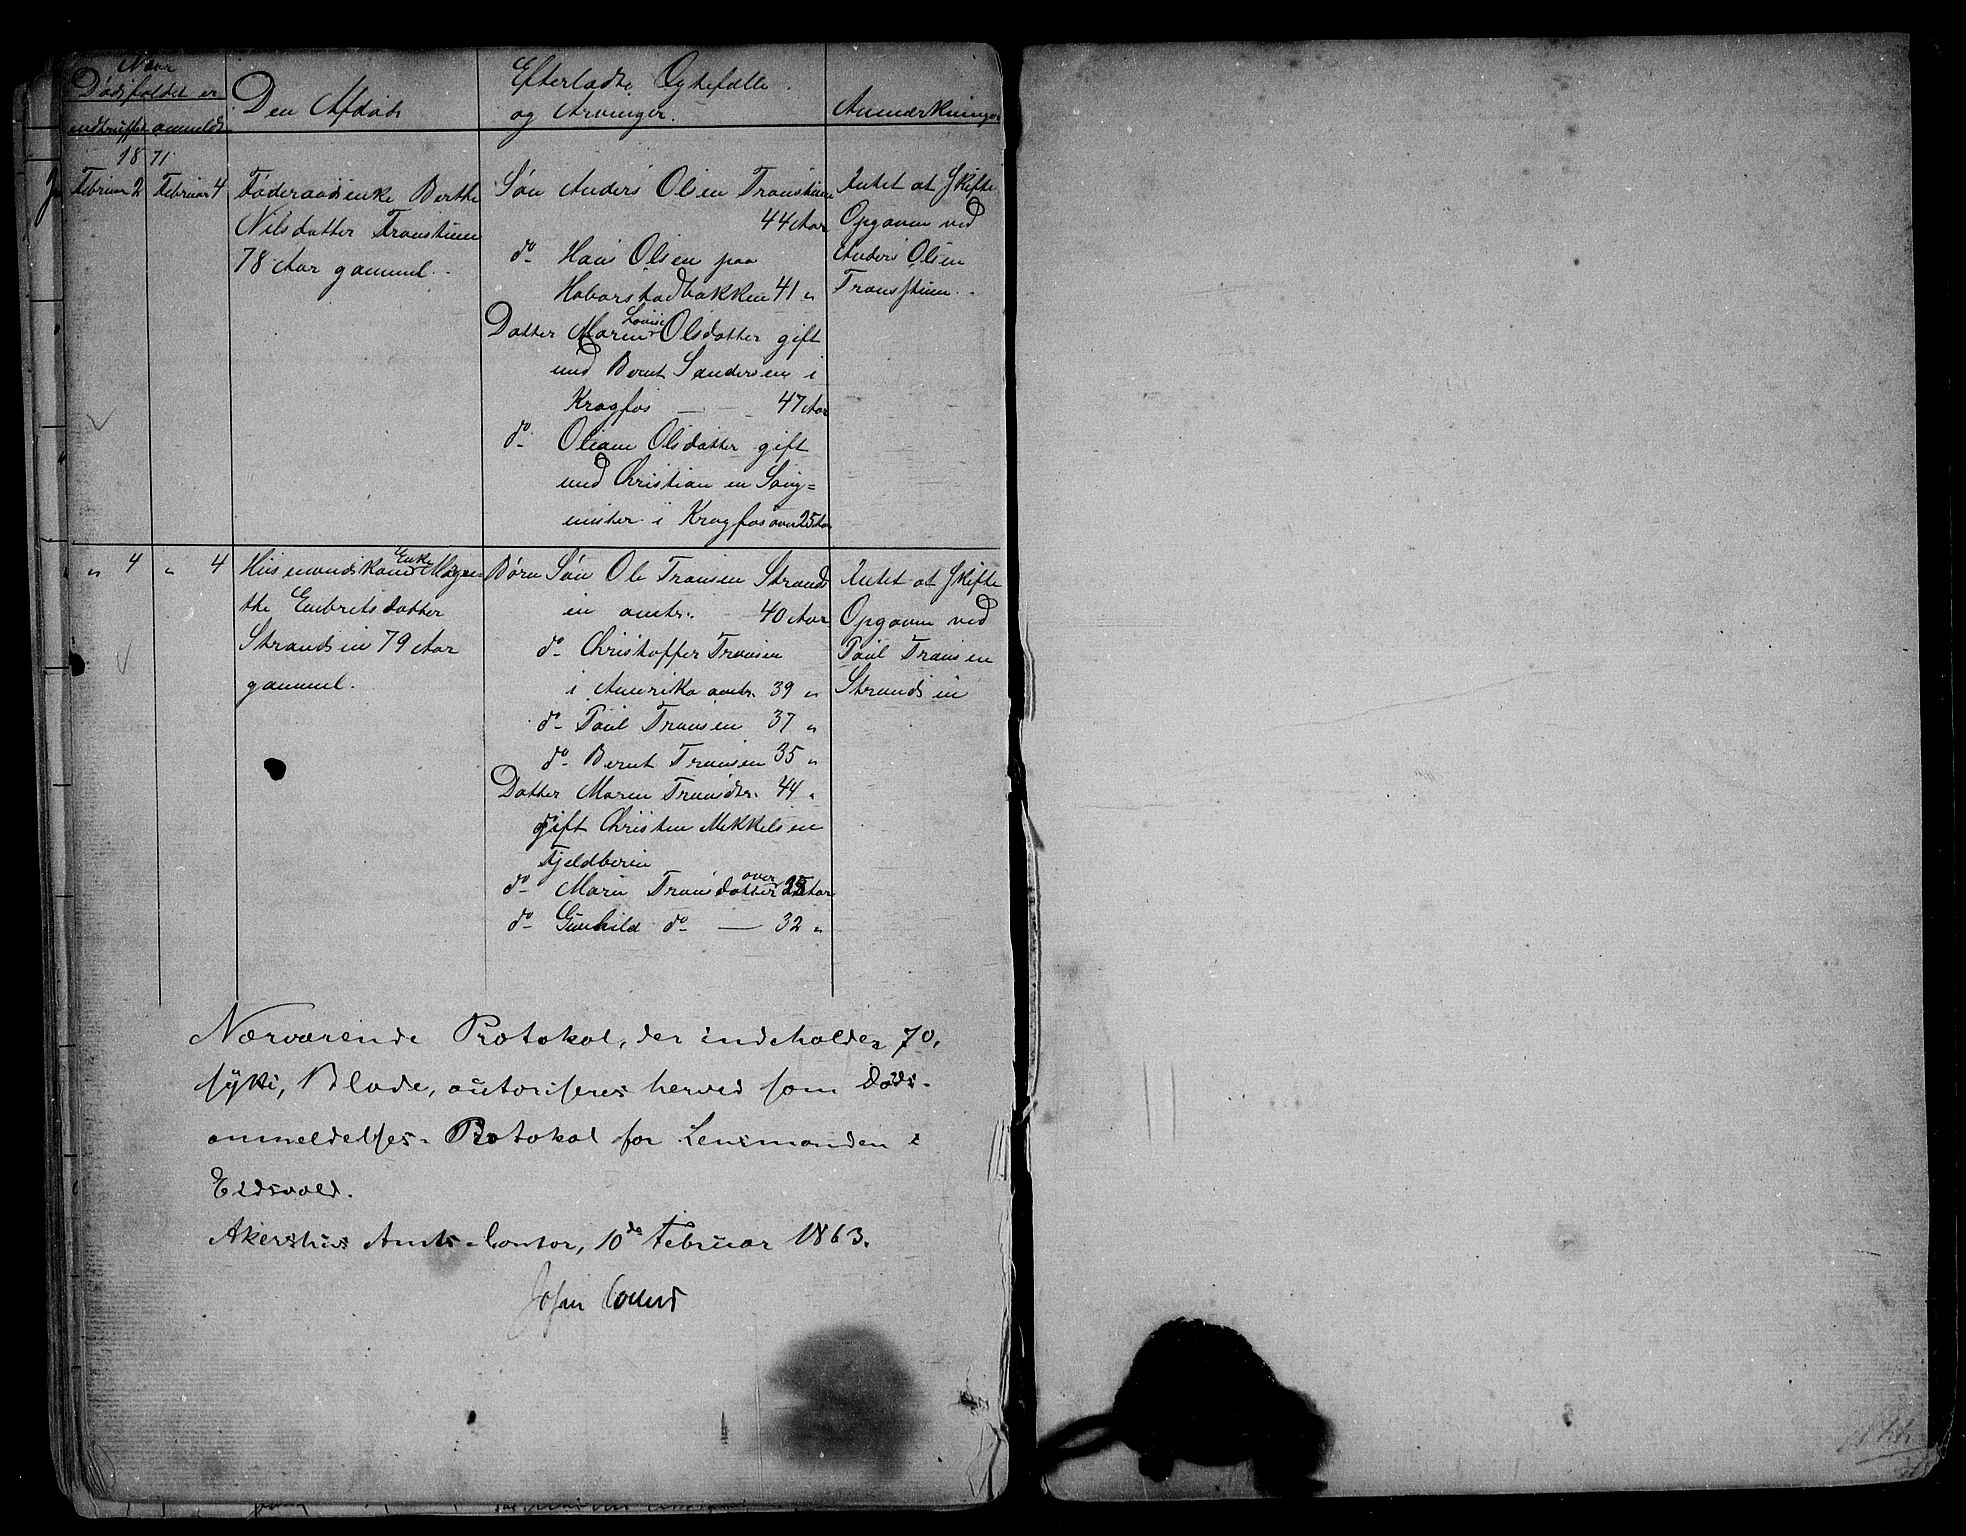 Naar
Dødsfaldet er
indtruffet anmeldt
Den Afdøde
Efterladte Ægtefælle
og Arvinger.
Anmærkninger
1871
Februar 2 Februar 4
Føderaadsenke Berthe
Nilsdatter Tronstuen
78 Aar gammel.
Søn Anders Olsen Tronstuen
44 Aar
do Hans Olsen paa
Habarstadbakken 41 "
Datter Maren Lovise Olsdatter gift
med Bernt Sandersen i
Kragfos — - 47 Aar
do Oliane Olsdatter gift
med Christian en Sang=
mester i Kragfos over 25 Aar
Intet at Skifte
Opgaven ved
Anders Olsen
Tronstuen.
" 4 " 4
Husmandskone Enke Magre=
the Embretsdatter
Strandsin 79 Aar
gammel.
Børn Søn Ole Tronsen Strands
in omtr. 40 Aar
do Christoffer Tronsen
i Amerika omtr. 39 "
do Paul Tronsen 37 "
do Bernt Tronsen 35 "
Datter Maren Tronsdtr. 44 "
gift Christen Mikkelsen
Fjeldberin
do Marie Tronsdatter over 25 Aar
do Gunhild do — 32 "
Intet at Skifte
Opgaven ved
Paul Tronsen
Strandsin
Nærværende Protokol, der indeholder 70,
syti, Blade, autoriseres herved som Døds-
anmeldelses-Protokol for Lensmanden i
Eidsvold.
Akershus Amts-Contor, 10de Februar 1863.
Johan Collett